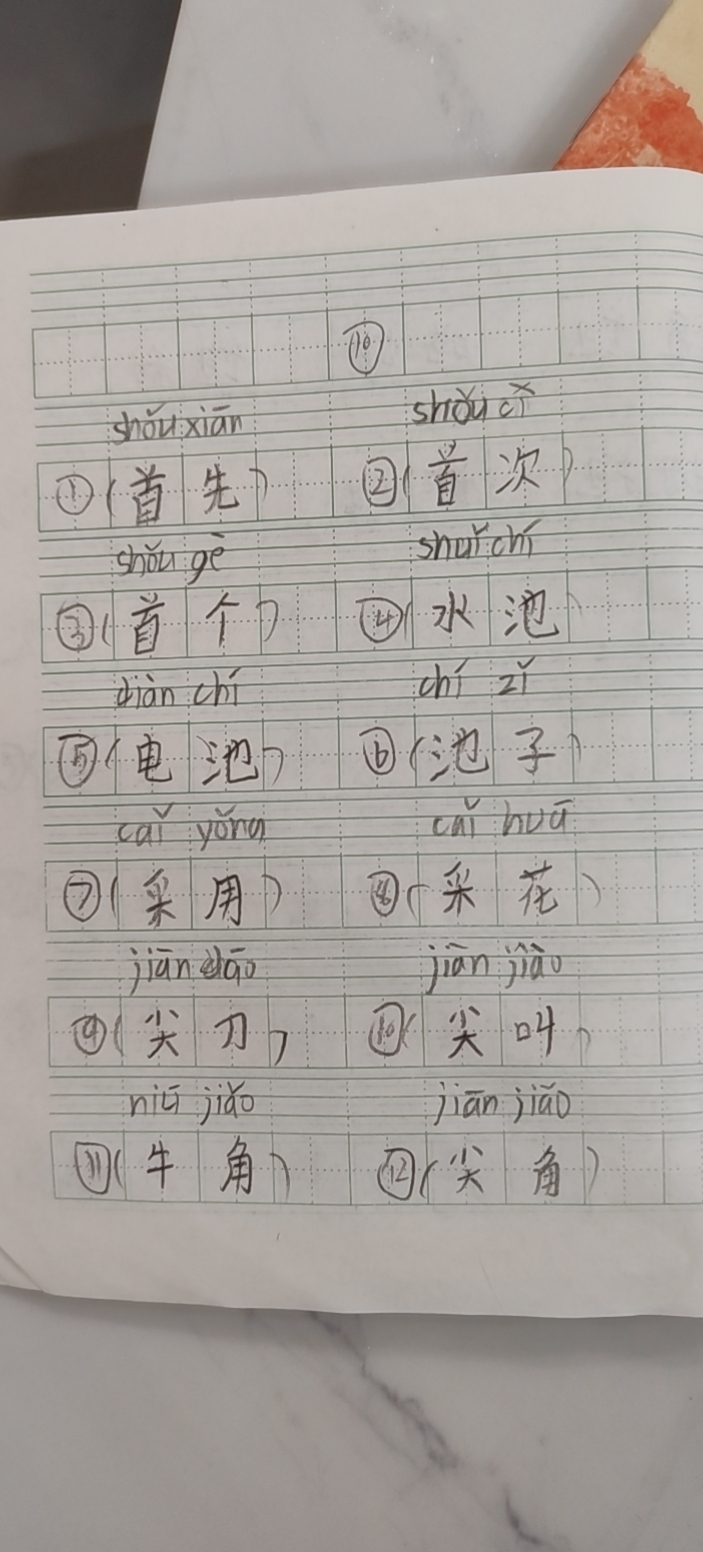 ⑩
shǒu xiān shǒu cì
①(首先) ②(首次)
shǒu gè shuǐ chí
③(首个) ④(水池)
diàn chí chí zǐ
⑤(电池) ⑥(池子)
cǎi yǒng cǎi huā
⑦(采用) ⑧(采花)
jiān dāo jiān jiào
⑨(尖刀) ⑩(尖叫)
niú jiǎo jiān jiǎo
⑪(牛角) ⑫(尖角)